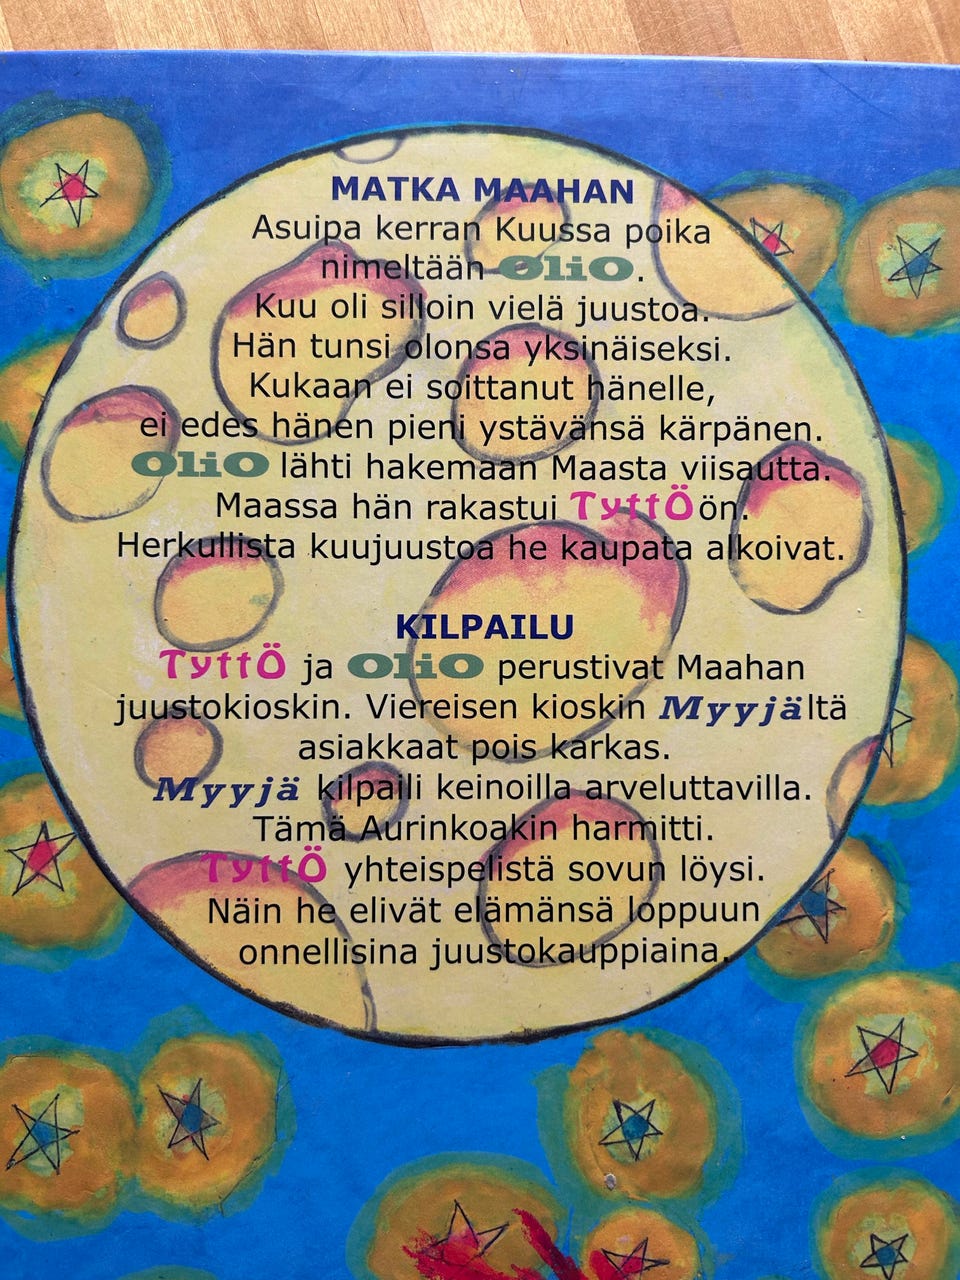 MATKA MAAHAN
Asuipa kerran Kuussa poika
nimeltään OliO.
Kuu oli silloin vielä juustoa.
Hän tunsi olonsa yksinäiseksi.
Kukaan ei soittanut hänelle,
ei edes hänen pieni ystävänsä kärpänen.
OliO lähti hakemaan Maasta viisautta.
Maassa hän rakastui TyttÖön.
Herkullista kuujuustoa he kaupata alkoivat.
KILPAILU
TyttÖ ja OliO perustivat Maahan
juustokioskin. Viereisen kioskin Myyjältä
asiakkaat pois karkas.
Myyjä kilpaili keinoilla arveluttavilla.
Tämä Aurinkoakin harmitti.
TyttÖ yhteispelistä sovun löysi.
Näin he elivät elämänsä loppuun
onnellisina juustokauppiaina.